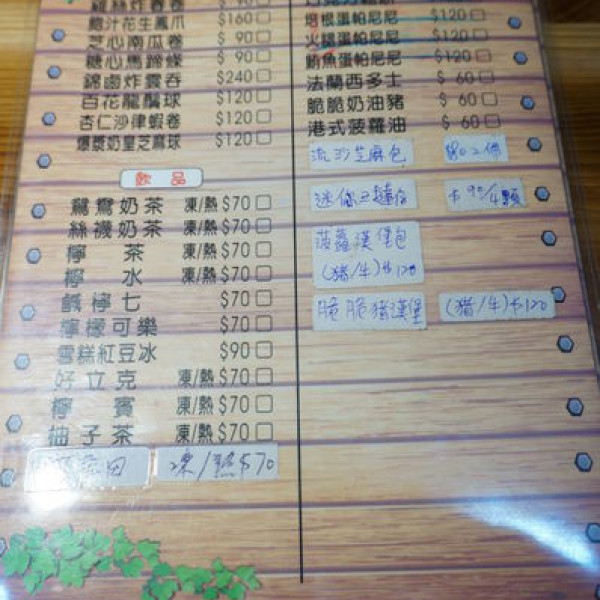 鮑汁花生鳳爪 $160
芝心南瓜卷 $ 90
糖心馬蹄條 $ 90
錦鹵炸雲吞 $240
百花龍鬚球 $120
杏仁沙律蝦卷 $120
爆漿奶皇芝麻球 $120
飲品
鴛鴦奶茶 凍/熱 $70
絲襪奶茶 凍/熱 $70
檸茶 凍/熱 $70
檸水 凍/熱 $70
鹹檸七 $70
檸檬可樂 $70
雪糕紅豆冰 $90
好立克 凍/熱 $70
檸賓 凍/熱 $70
柚子茶 凍/熱 $70
凍/熱 $70
培根蛋帕尼尼 $120
火腿蛋帕尼尼 $120
鮪魚蛋帕尼尼 $120
法蘭西多士 $ 60
脆脆奶油豬 $ 60
港式菠蘿油 $ 60
流沙芝麻包
迷你 $90/4顆
菠蘿漢堡包
(豬/牛) $120
脆脆豬漢堡 (豬/牛) $120